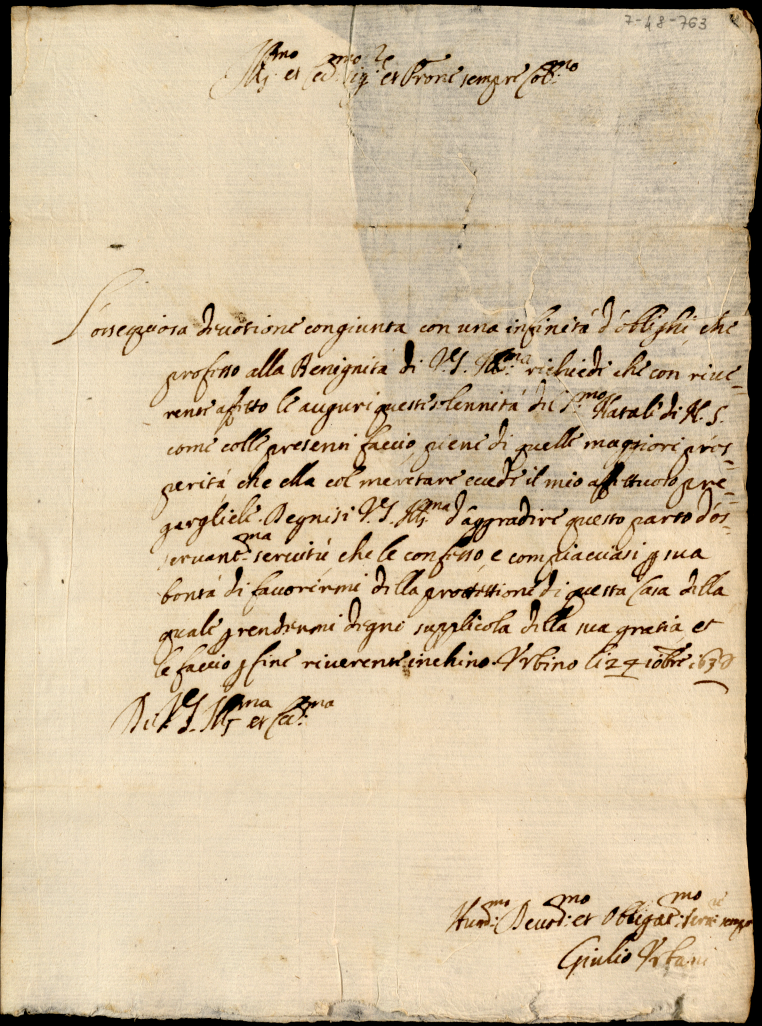 7-48-763
Ill.mo et Ecc.mo Sig.re et Prone sempre Col.mo
L'ossequiosa devotione congiunta con una infinità d'oblighi, che
professo alla Benignità di V.S. Ill.ma richiede che con rive-
rente affetto le auguri queste solennità del S.mo Natale di N. S.
come colle presenti faccio, piene di quelle maggiori pros-
perità, che ella col meritare eccede il mio affettuoso pre-
gargliele. Degnisi V.S. Ill.ma d'aggradire questo parto d'os-
servant.ma servitù che le confesso, e compiacciasi p sua
bontà di favorirmi della protettione di questa Casa della
quale p rendermi degno supplicola della sua gratia et
le faccio p fine riverente inchino. Urbino li 24 10bre
Di V.S. Ill.ma et Ecc.ma
Hum.mo Devot.mo et Obligat.mo Ser.re sempre
Giulio Urbani